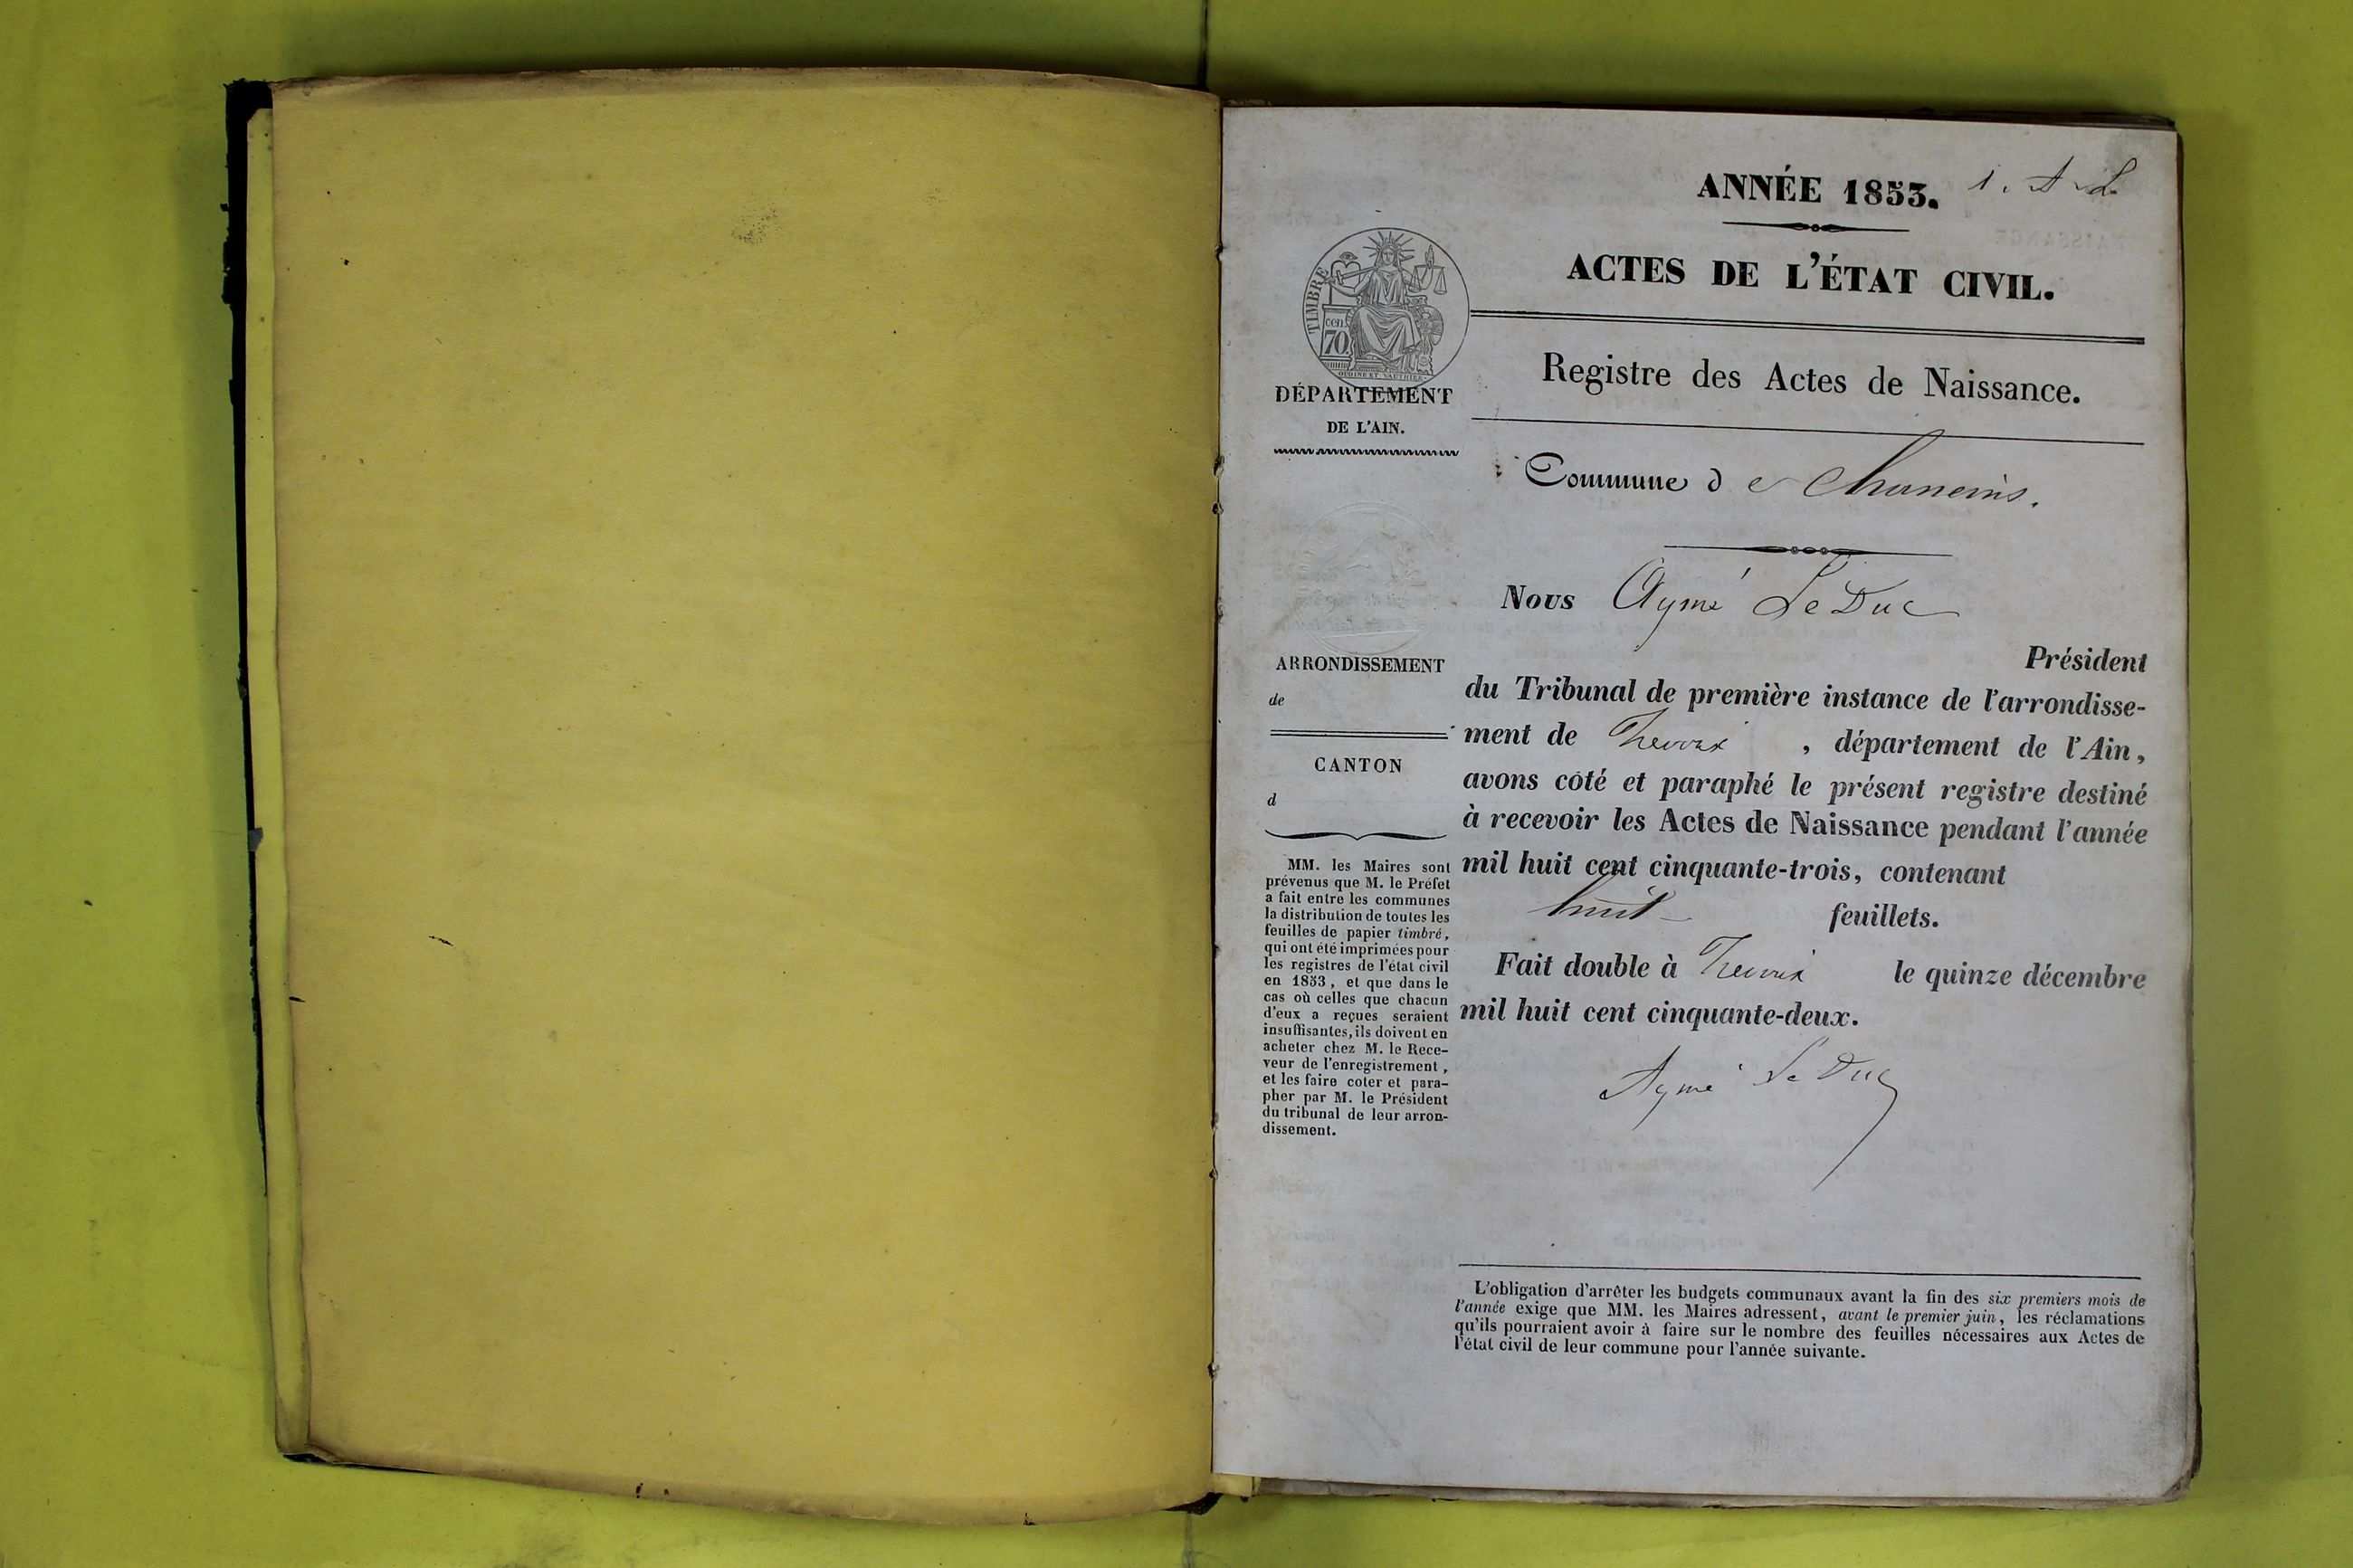 ANNÉE 1853. 1. A. L
ACTES DE L'ÉTAT CIVIL.
TIMBRE
cen.
70
DÉPARTEMENT
DE L'AIN.
Registre des Actes de Naissance.
Commune de Chaneins.
Nous Aymé Le Duc
Président
du Tribunal de première instance de l'arrondisse-
ment de Trevoux, département de l'Ain,
avons coté et paraphé le présent registre destiné
à recevoir les Actes de Naissance pendant l'année
mil huit cent cinquante-trois, contenant
huit feuillets.
Fait double à Trevoux le quinze décembre
mil huit cent cinquante-deux.
Aymé Le Duc
ARRONDISSEMENT
de
CANTON
d
MM. les Maires sont
prévenus que M. le Préfet
a fait entre les communes
la distribution de toutes les
feuilles de papier timbré,
qui ont été imprimées pour
les registres de l'état civil
en 1853, et que dans le
cas où celles que chacun
d'eux a reçues seraient
insuffisantes, ils doivent en
acheter chez M. le Rece-
veur de l'enregistrement,
et les faire coter et para-
pher par M. le Président
du tribunal de leur arron-
dissement.
L'obligation d'arrêter les budgets communaux avant la fin des six premiers mois de
l'année exige que MM. les Maires adressent, avant le premier juin, les réclamations
qu'ils pourraient avoir à faire sur le nombre des feuilles nécessaires aux Actes de
l'état civil de leur commune pour l'année suivante.